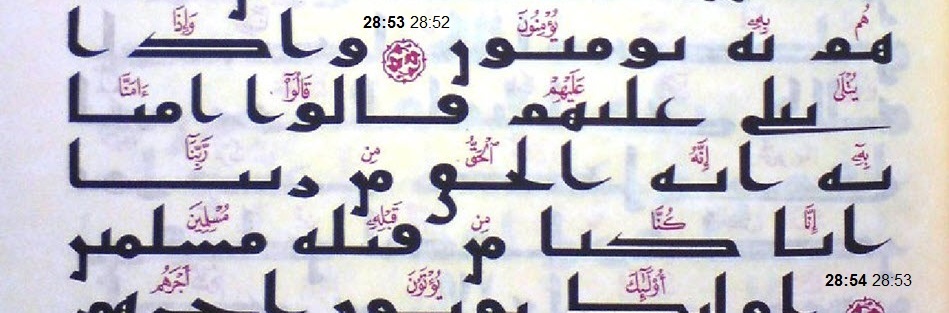 28:53 28:52
هُم بِهِۦ يُؤْمِنُونَ وَإِذَا
هم به يومنون واذا
يُتْلَىٰ عَلَيْهِمْ قَالُوٓا۟ ءَامَنَّا
يتلى عليهم قالوا امنا
بِهِۦٓ إِنَّهُ ٱلْحَقُّ مِن رَّبِّنَآ
به انه الحق من ربنا
إِنَّا كُنَّا مِن قَبْلِهِۦ مُسْلِمِينَ
انا كنا من قبله مسلمين
28:54 28:53
أُو۟لَٰٓئِكَ يُؤْتَوْنَ أَجْرَهُم
اولىك يوتون اجرهم